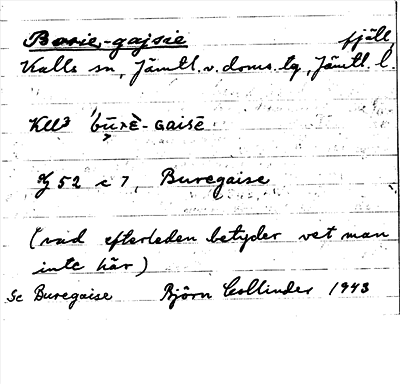 Borie-gajsie fjäll,
Kalls sn, Jämtl. v. doms. lg, Jämtl. l.
Kll3
Bf 52 c 7, Buregaise
(vad efterleden betyder vet man
inte här)
Se Buregaise Björn Collinder 1943